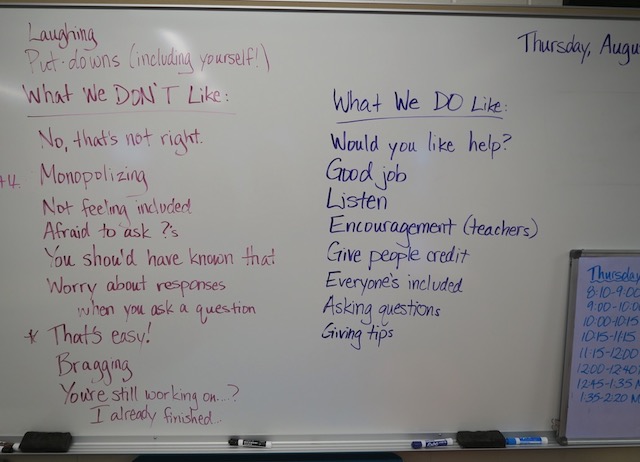 Laughing
Put-downs (including yourself!)
What We DON'T Like:
No, that's not right.
+4 Monopolizing
Not feeling included
Afraid to ask ?'s
You should have known that
Worry about responses
when you ask a question
* That's easy!
Bragging
You're still working on....?
I already finished...
What We DO Like:
Would you like help?
Good job
Listen
Encouragement (teachers)
Give people credit
Everyone's included
Asking questions
Giving tips
Thursday, Augu
Thursday
8:10-9:00
9:00-10:0
10:00-10:15
10:15-11:15
11:15-12:00
12:00-12:40
12:45-1:35 M
1:35-2:20 M